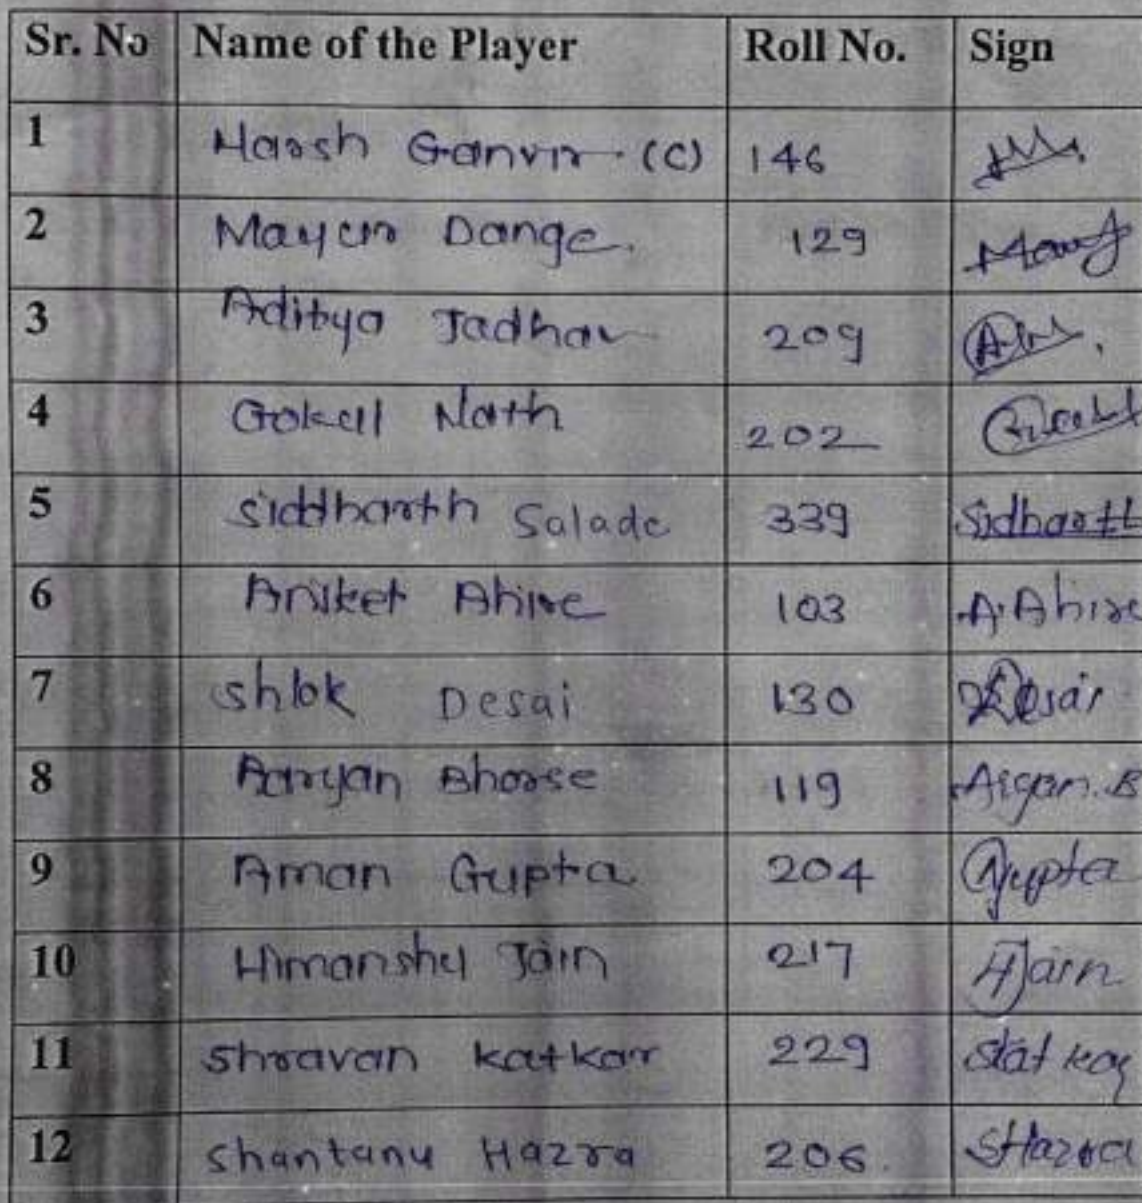 Sr. No Name of the Player Roll No. Sign
1 Harsh Ganvir (C) 146
2 Mayur Dange. 129
3 Aditya Jadhav 209
4 Gokull Nath 202
5 Siddharth Salade 339 Sidharth
6 Aniket Ahire 103 A.Ahire
7 Shlok Desai 130 Desai
8 Aaryan Bhorse 119 Aryan.B
9 Aman Gupta 204 Gupta
10 Himanshu Jain 217 HJain
11 Shravan Katkar 229
12 Shantanu Hazra 206. SHazra